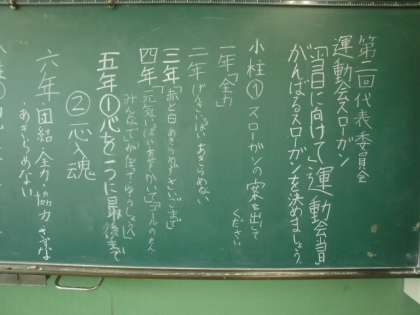 第二回代表委員会
運動会スローガン
「当日に向けて」運動会当日
がんばるスローガンを決めましょう。
小柱① スローガンの案を出して
ください
一年「全力」
二年 げんきいっぱい あきらめない
三年「赤と白あきらめずさいごまで」
四年「元気いっぱい
みんなで
五年①心を一つに最後まで
②一心入魂
六年・団結 全力 協力
・あきらめない